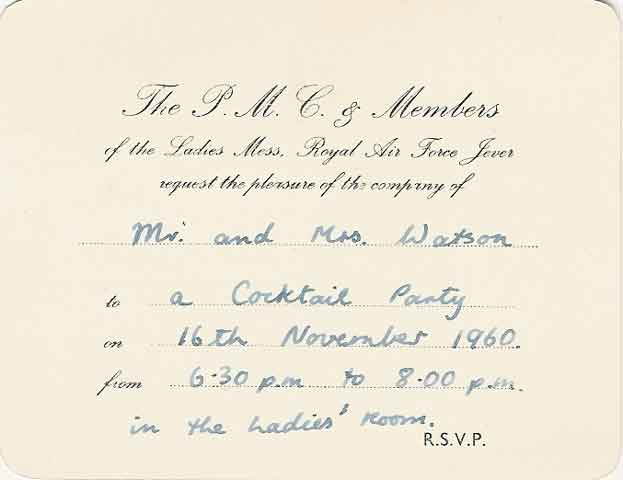 The P. M. C. & Members
of the Ladies Mess, Royal Air Force Jever
request the pleasure of the company of
Mr. and Mrs. Watson
to a Cocktail Party
on 16th November 1960.
from 6·30 p.m to 8·00 p.m.
in the Ladies' Room.
R.S.V.P.